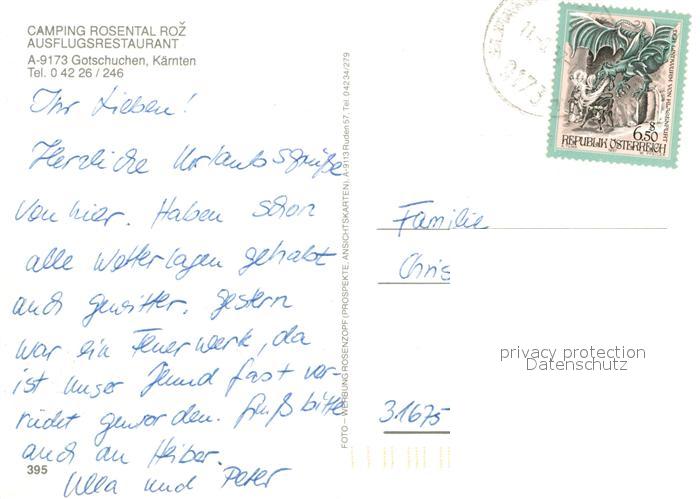 CAMPING ROSENTAL ROŽ
AUSFLUGSRESTAURANT
A-9173 Gotschuchen, Kärnten
Tel. 0 42 26 / 246
Ihr Lieben!
Herzliche Urlaubsgrüße
von hier. Haben schon
alle Wetterlagen gehabt
auch gewitter. gestern
war ein Feuerwerk, da
ist unser Hund fast ver-
rückt geworden. Grüß bitte
auch an Heiber.
Ulla und Peter
395
FOTO – WERBUNG ROSENZOPF (PROSPEKTE, ANSICHTSKARTEN), A-9113 Ruden 57, Tel. 0 42 34/279
9173
DER LINDWURM VON KLAGENFURT
S
6.50
REPUBLIK ÖSTERREICH
Familie
Chris
privacy protection
Datenschutz
31675